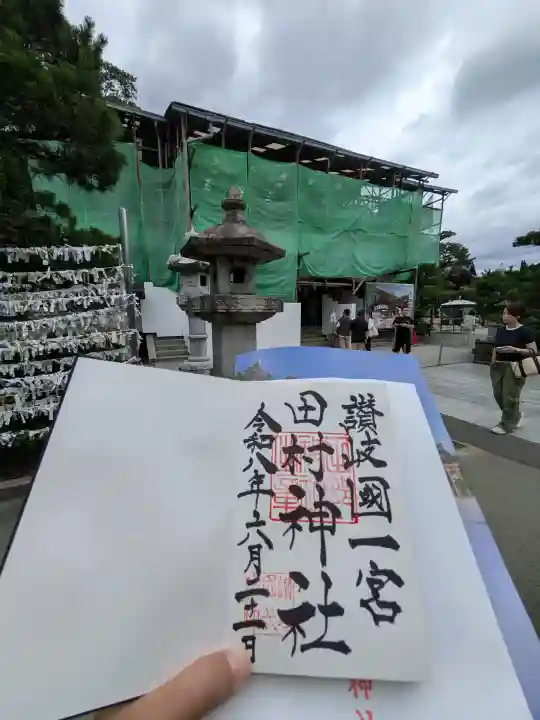 讃岐國一宮
田村神社
令和八年六月二十一日
神社